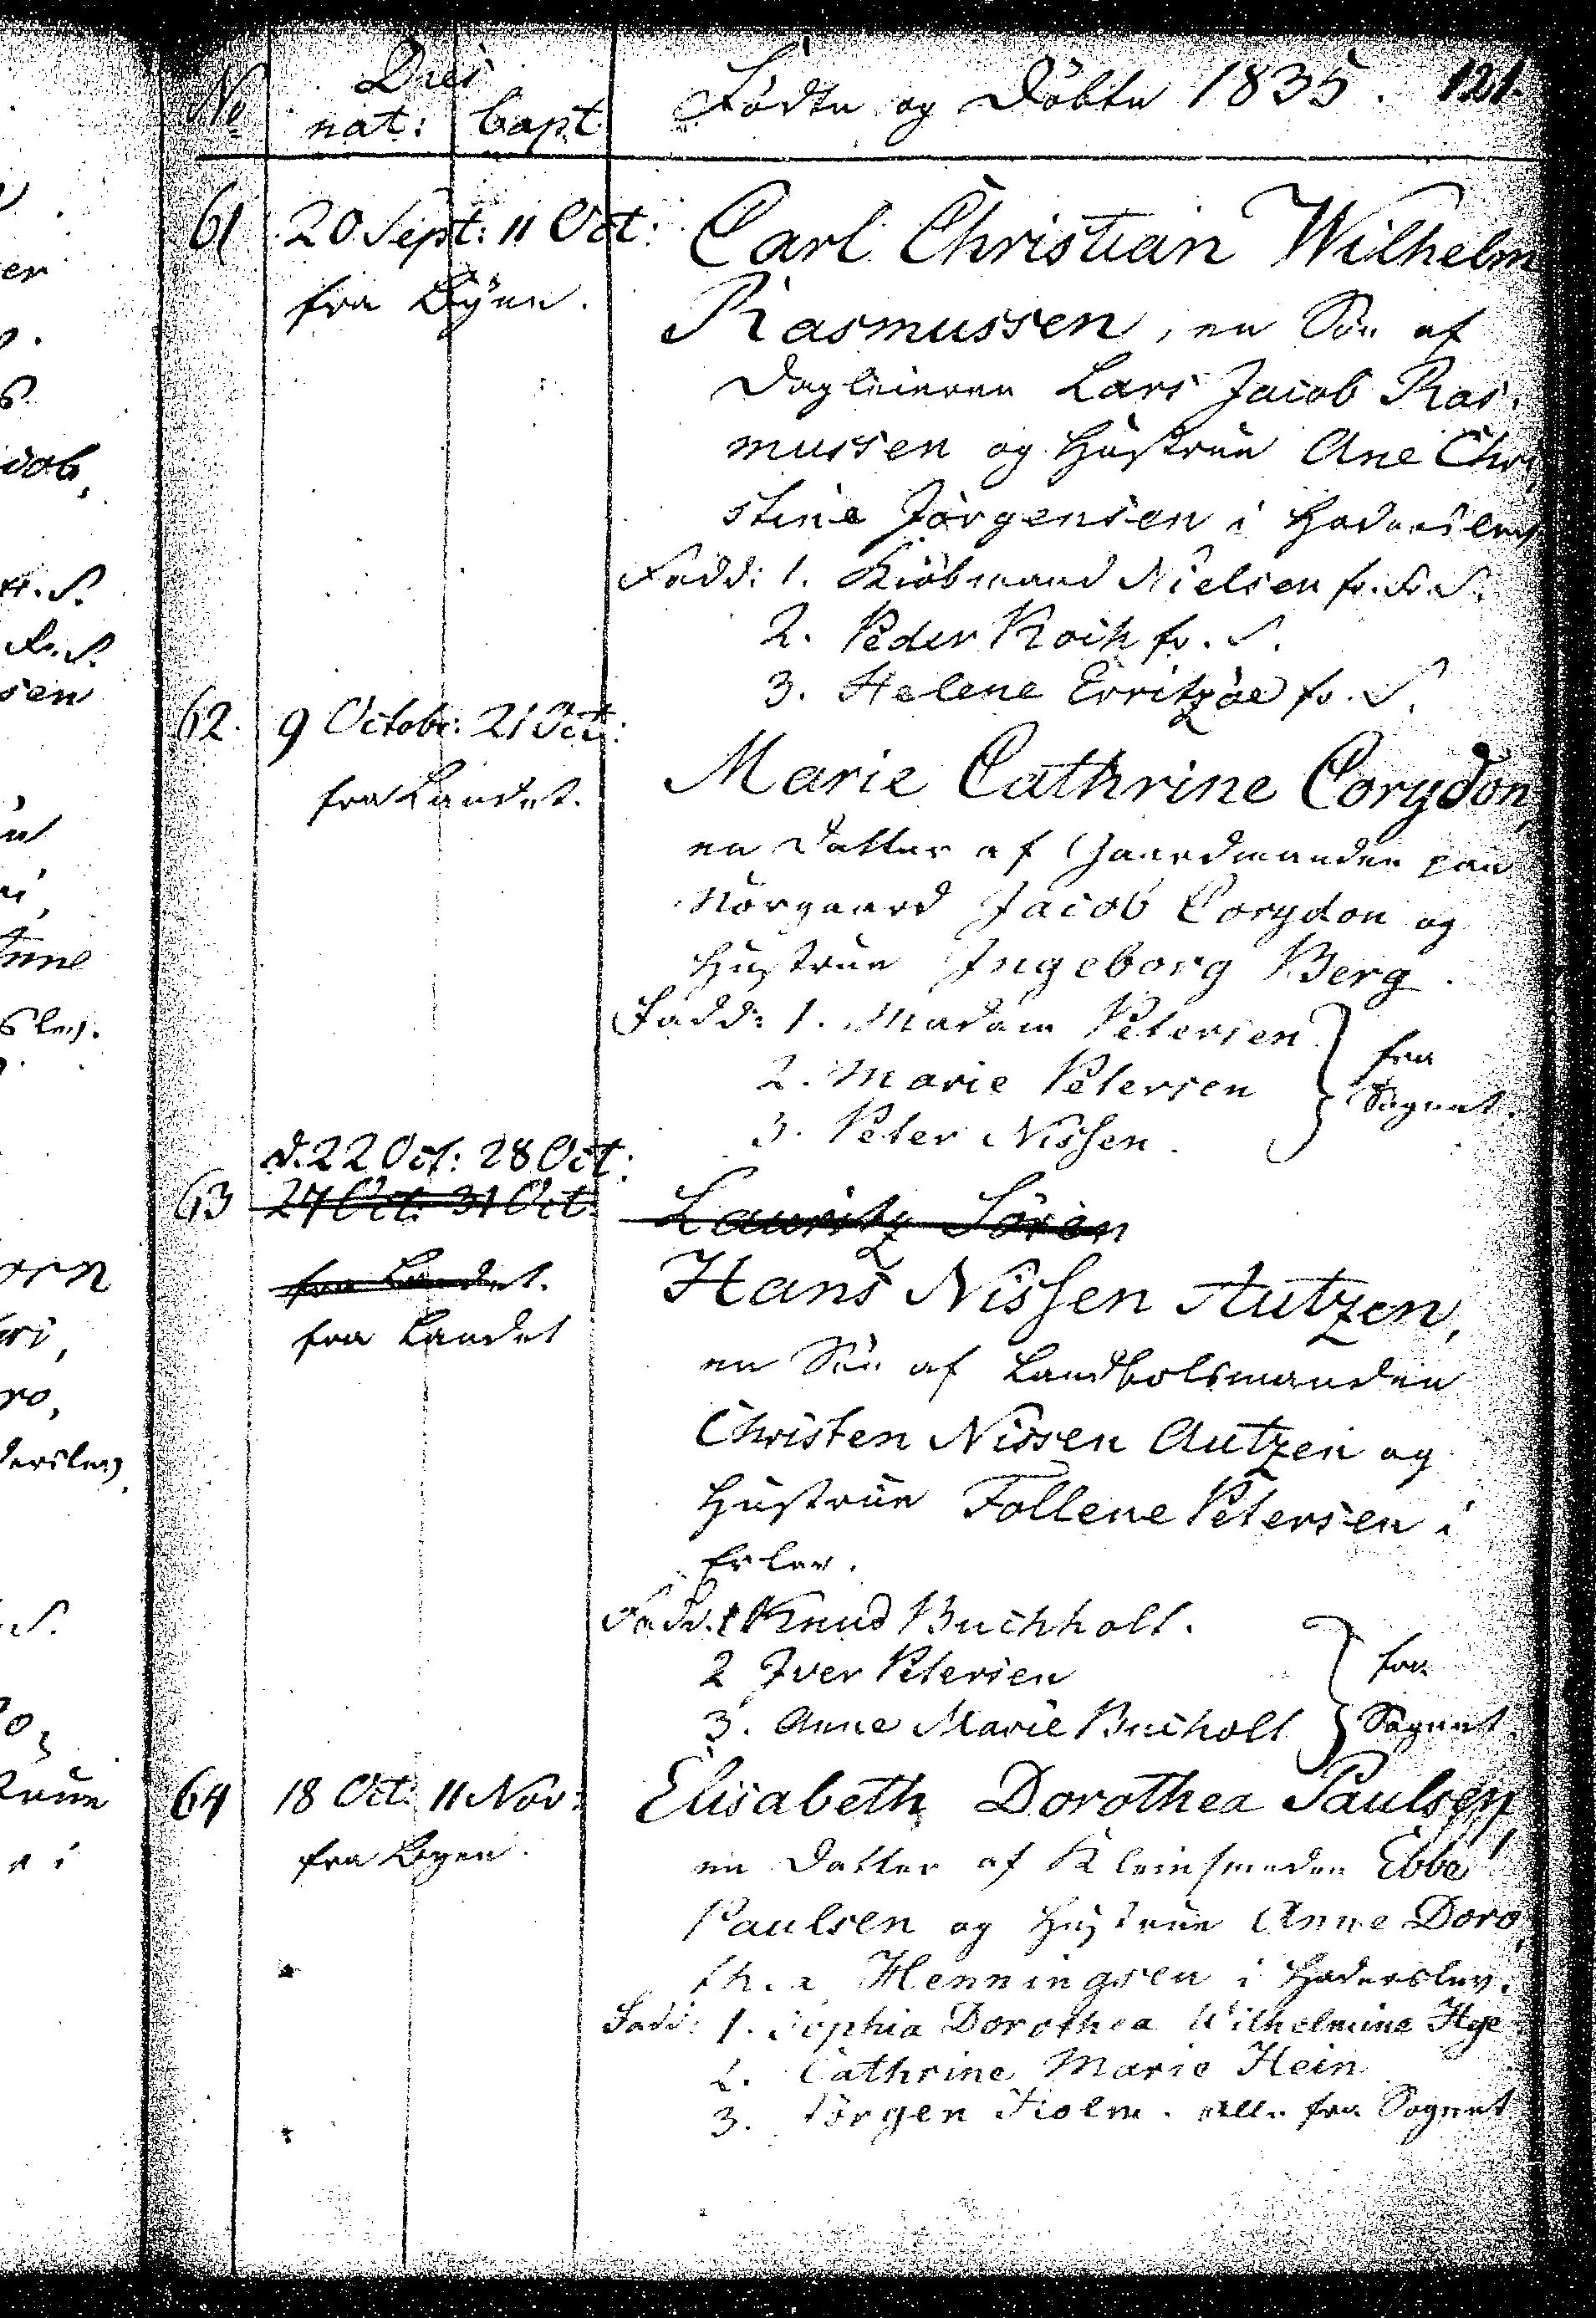 No Dies Födte og Döbte 1835. 121.
nat: bapt
61 20 Sept: 11 Oct: Carl Christian Wilhelm
fra Byen. Rasmussen, en Sön af
Dagleieren Lars Jacob Ras-
mussen og Hustrue Ane Chri
stine Jörgensen i Haderslev
Fadd: 1. Kiöbmand Nielsen fr. Fr. S.
2. Peder Koch fr. S.
3. Helene Erritzöe fr. S.
62. 9 Octobr: 21 Oct: Marie Cathrine Corydon,
fra Landet.
en Datter af Gaardmanden paa
Norgaard Jacob Corydon og
Hustrue Ingeborg Berg.
Fadd: 1. Madam Petersen
2. Marie Petersen
3. Peter Nissen.
fra
Sognet.
d. 22 Oct: 28 Oct:
63 27 Oct: 31 Oct: Lauritz Sören
fra Landet. Hans Nissen Autzen,
fra Landet
en Sön af Landbolsmanden
Christen Nissen Autzen og
Hustrue Follene Petersen i
Erlev.
Fadd. 1 Knud Buchholt.
2 Iver Petersen
3. Anne Marie Bucholt
fra
Sognet.
64 18 Oct: 11 Nov: Elisabeth Dorothea Paulsen,
fra Byen. en Datter af Kleinsmeden Ebbe
Paulsen og Hustrue Anne Doro
thea Henningsen i Haderslev.
Fadd: 1. Sophia Dorothea Wilhelmine Hye
2. Cathrine Marie Hein
3. Jörgen Holm. Alle fra Sognet